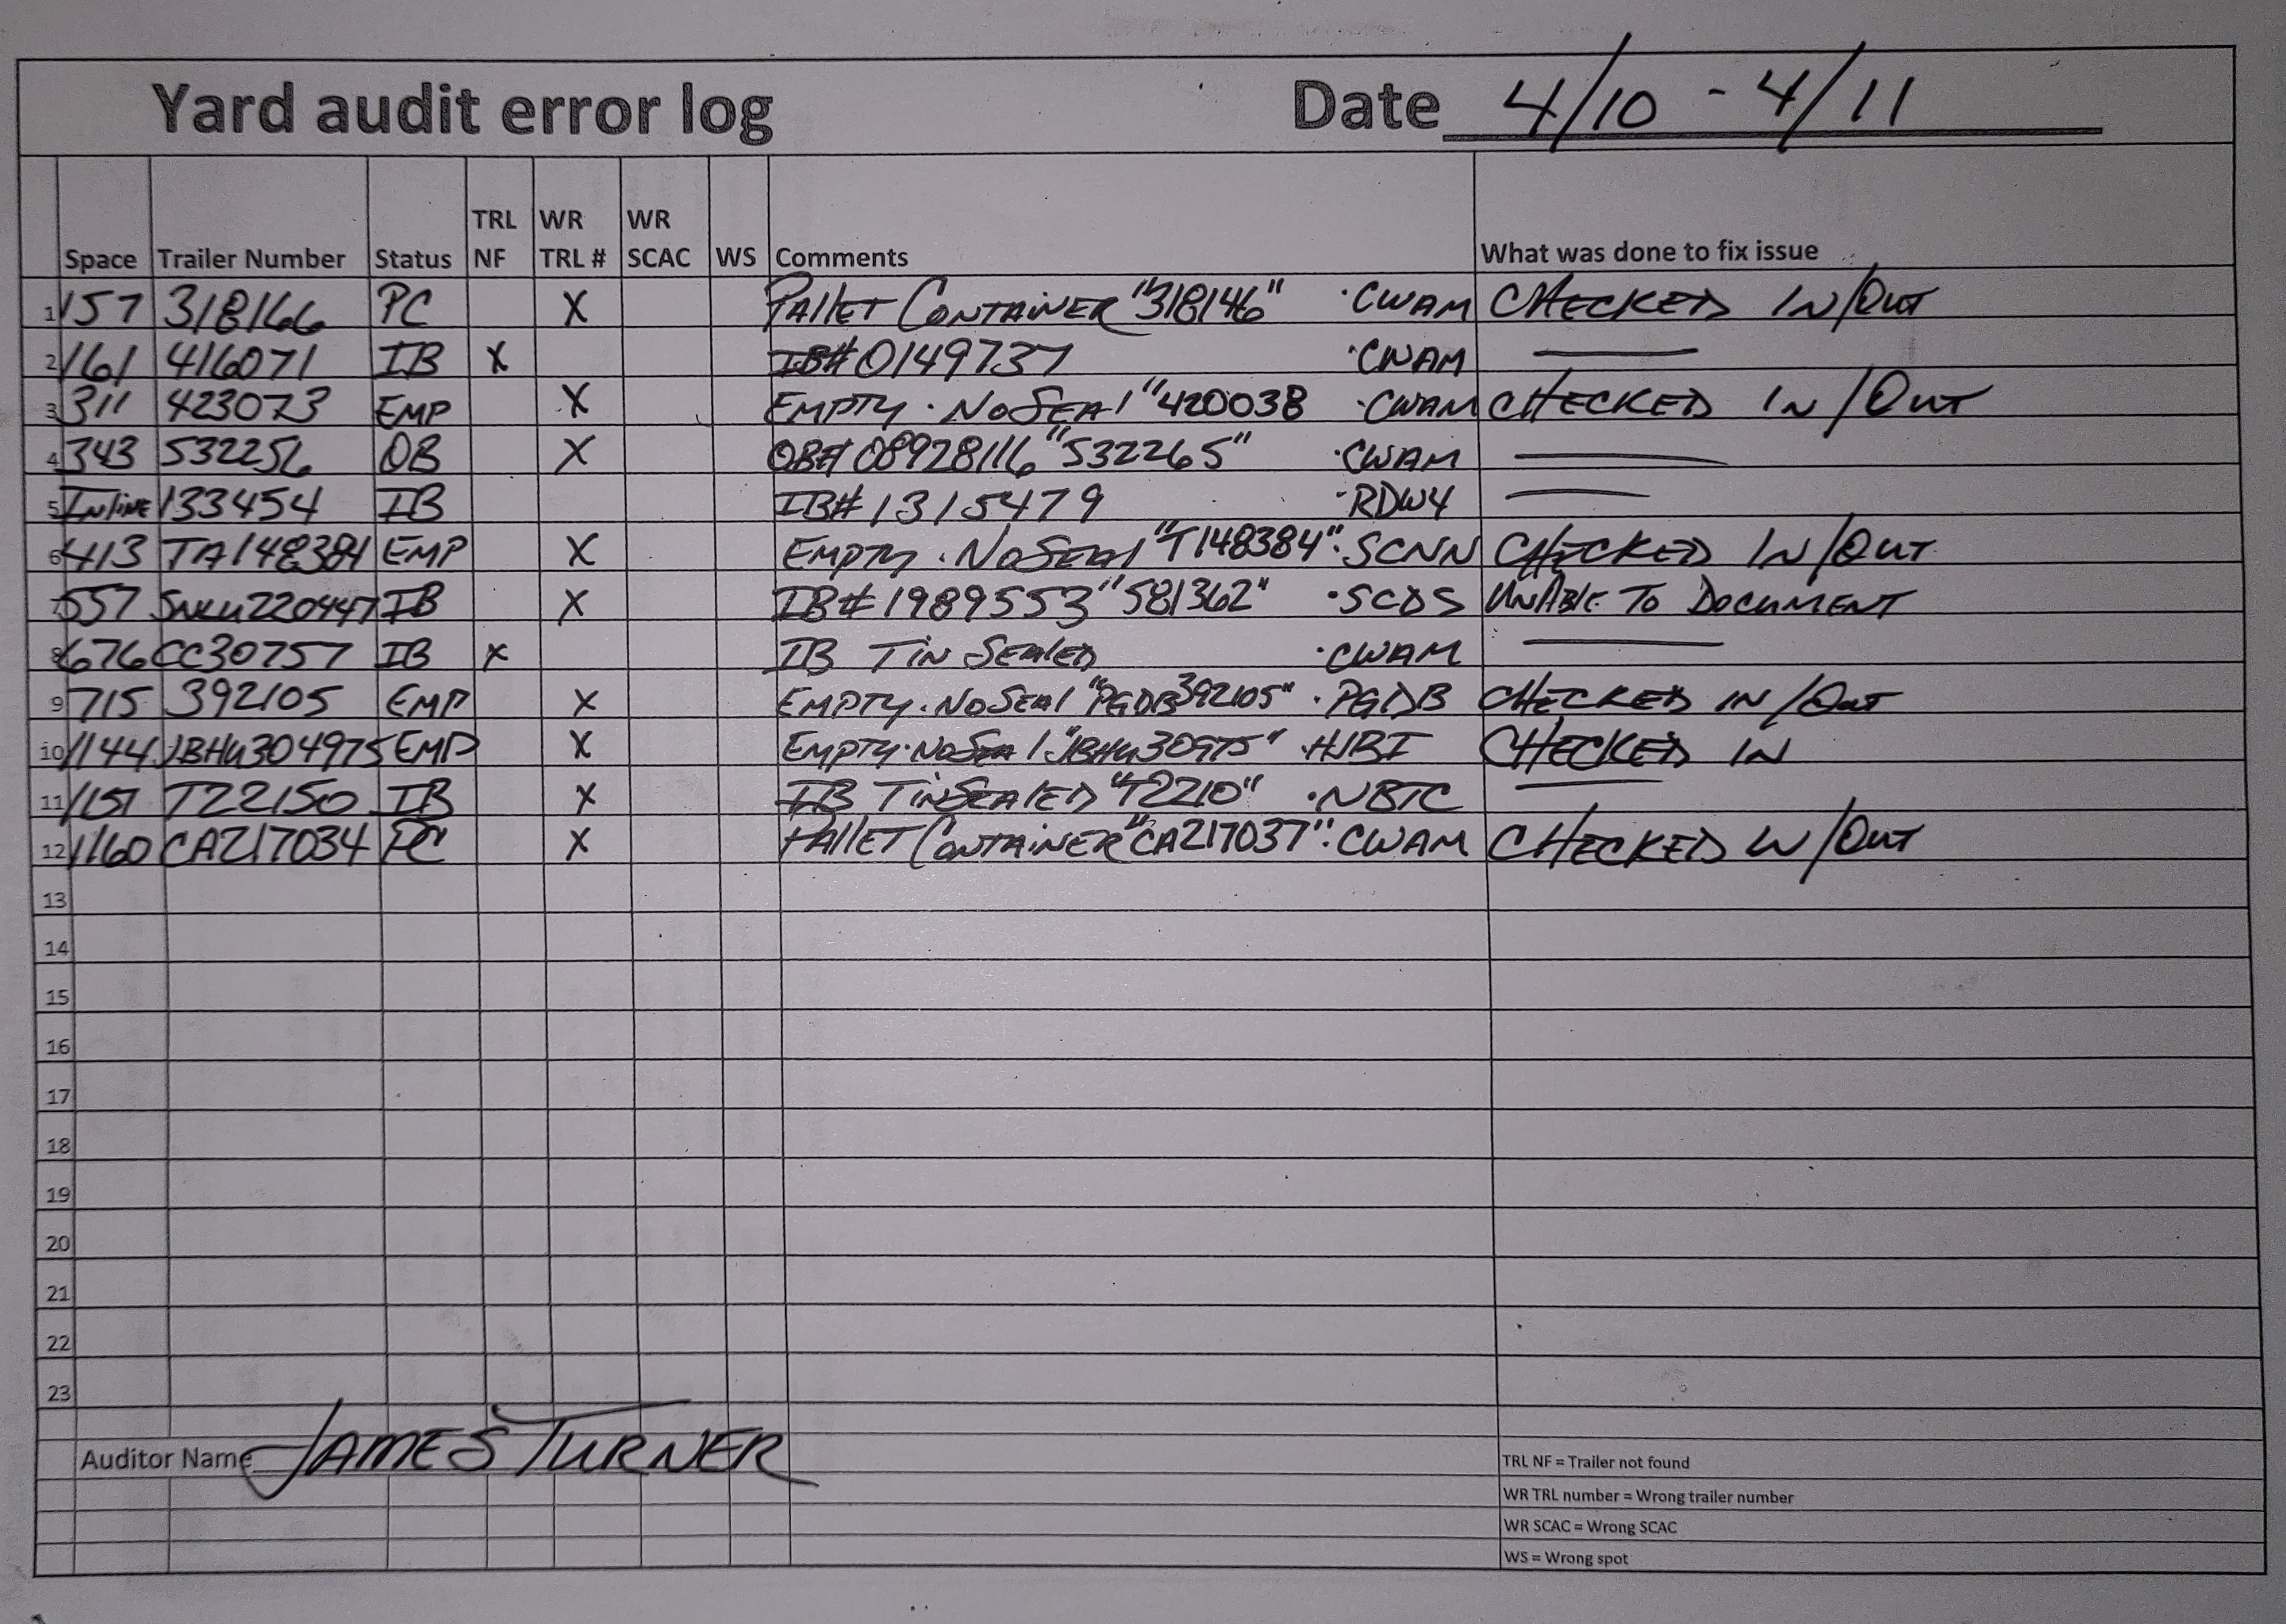 Yard audit error log Date 4/10 - 4/11
Space Trailer Number Status TRL NF WR TRL # WR SCAC WS Comments What was done to fix issue
1 157 318166 PC X PALLET CONTAINER "318146" ·CWAM CHECKED IN/OUT
2 161 416071 IB X IB# 0149737 ·CWAM —
3 311 423073 EMP X EMPTY · NO SEAL "420038 ·CWAM CHECKED IN/OUT
4 343 532256 OB X OB# 08928116 "532265" ·CWAM —
5 INLINE 133454 IB IB# 1315479 -RDW4 —
6 413 TA148384 EMP X EMPTY · NO SEAL "T148384" · SCNN CHECKED IN/OUT
7 557 SNLU220447 IB X IB# 1989553 "581362" ·SCDS UNABLE TO DOCUMENT
8 676 CC30757 IB X IB TIN SEALED ·CWAM —
9 715 392105 EMP X EMPTY · NO SEAL "PGDB392105" · PGDB CHECKED IN/OUT
10 1144 JBHU304975 EMP X EMPTY · NO SEAL "JBHU30975" ·HJBI CHECKED IN
11 1151 T22150 IB X IB TIN SEALED "T2210" ·NBTC —
12 1160 CA217034 PC X PALLET CONTAINER "CA217037" · CWAM CHECKED IN/OUT
13
14
15
16
17
18
19
20
21
22
23
Auditor Name JAMES TURNER
TRL NF = Trailer not found
WR TRL number = Wrong trailer number
WR SCAC = Wrong SCAC
WS = Wrong spot